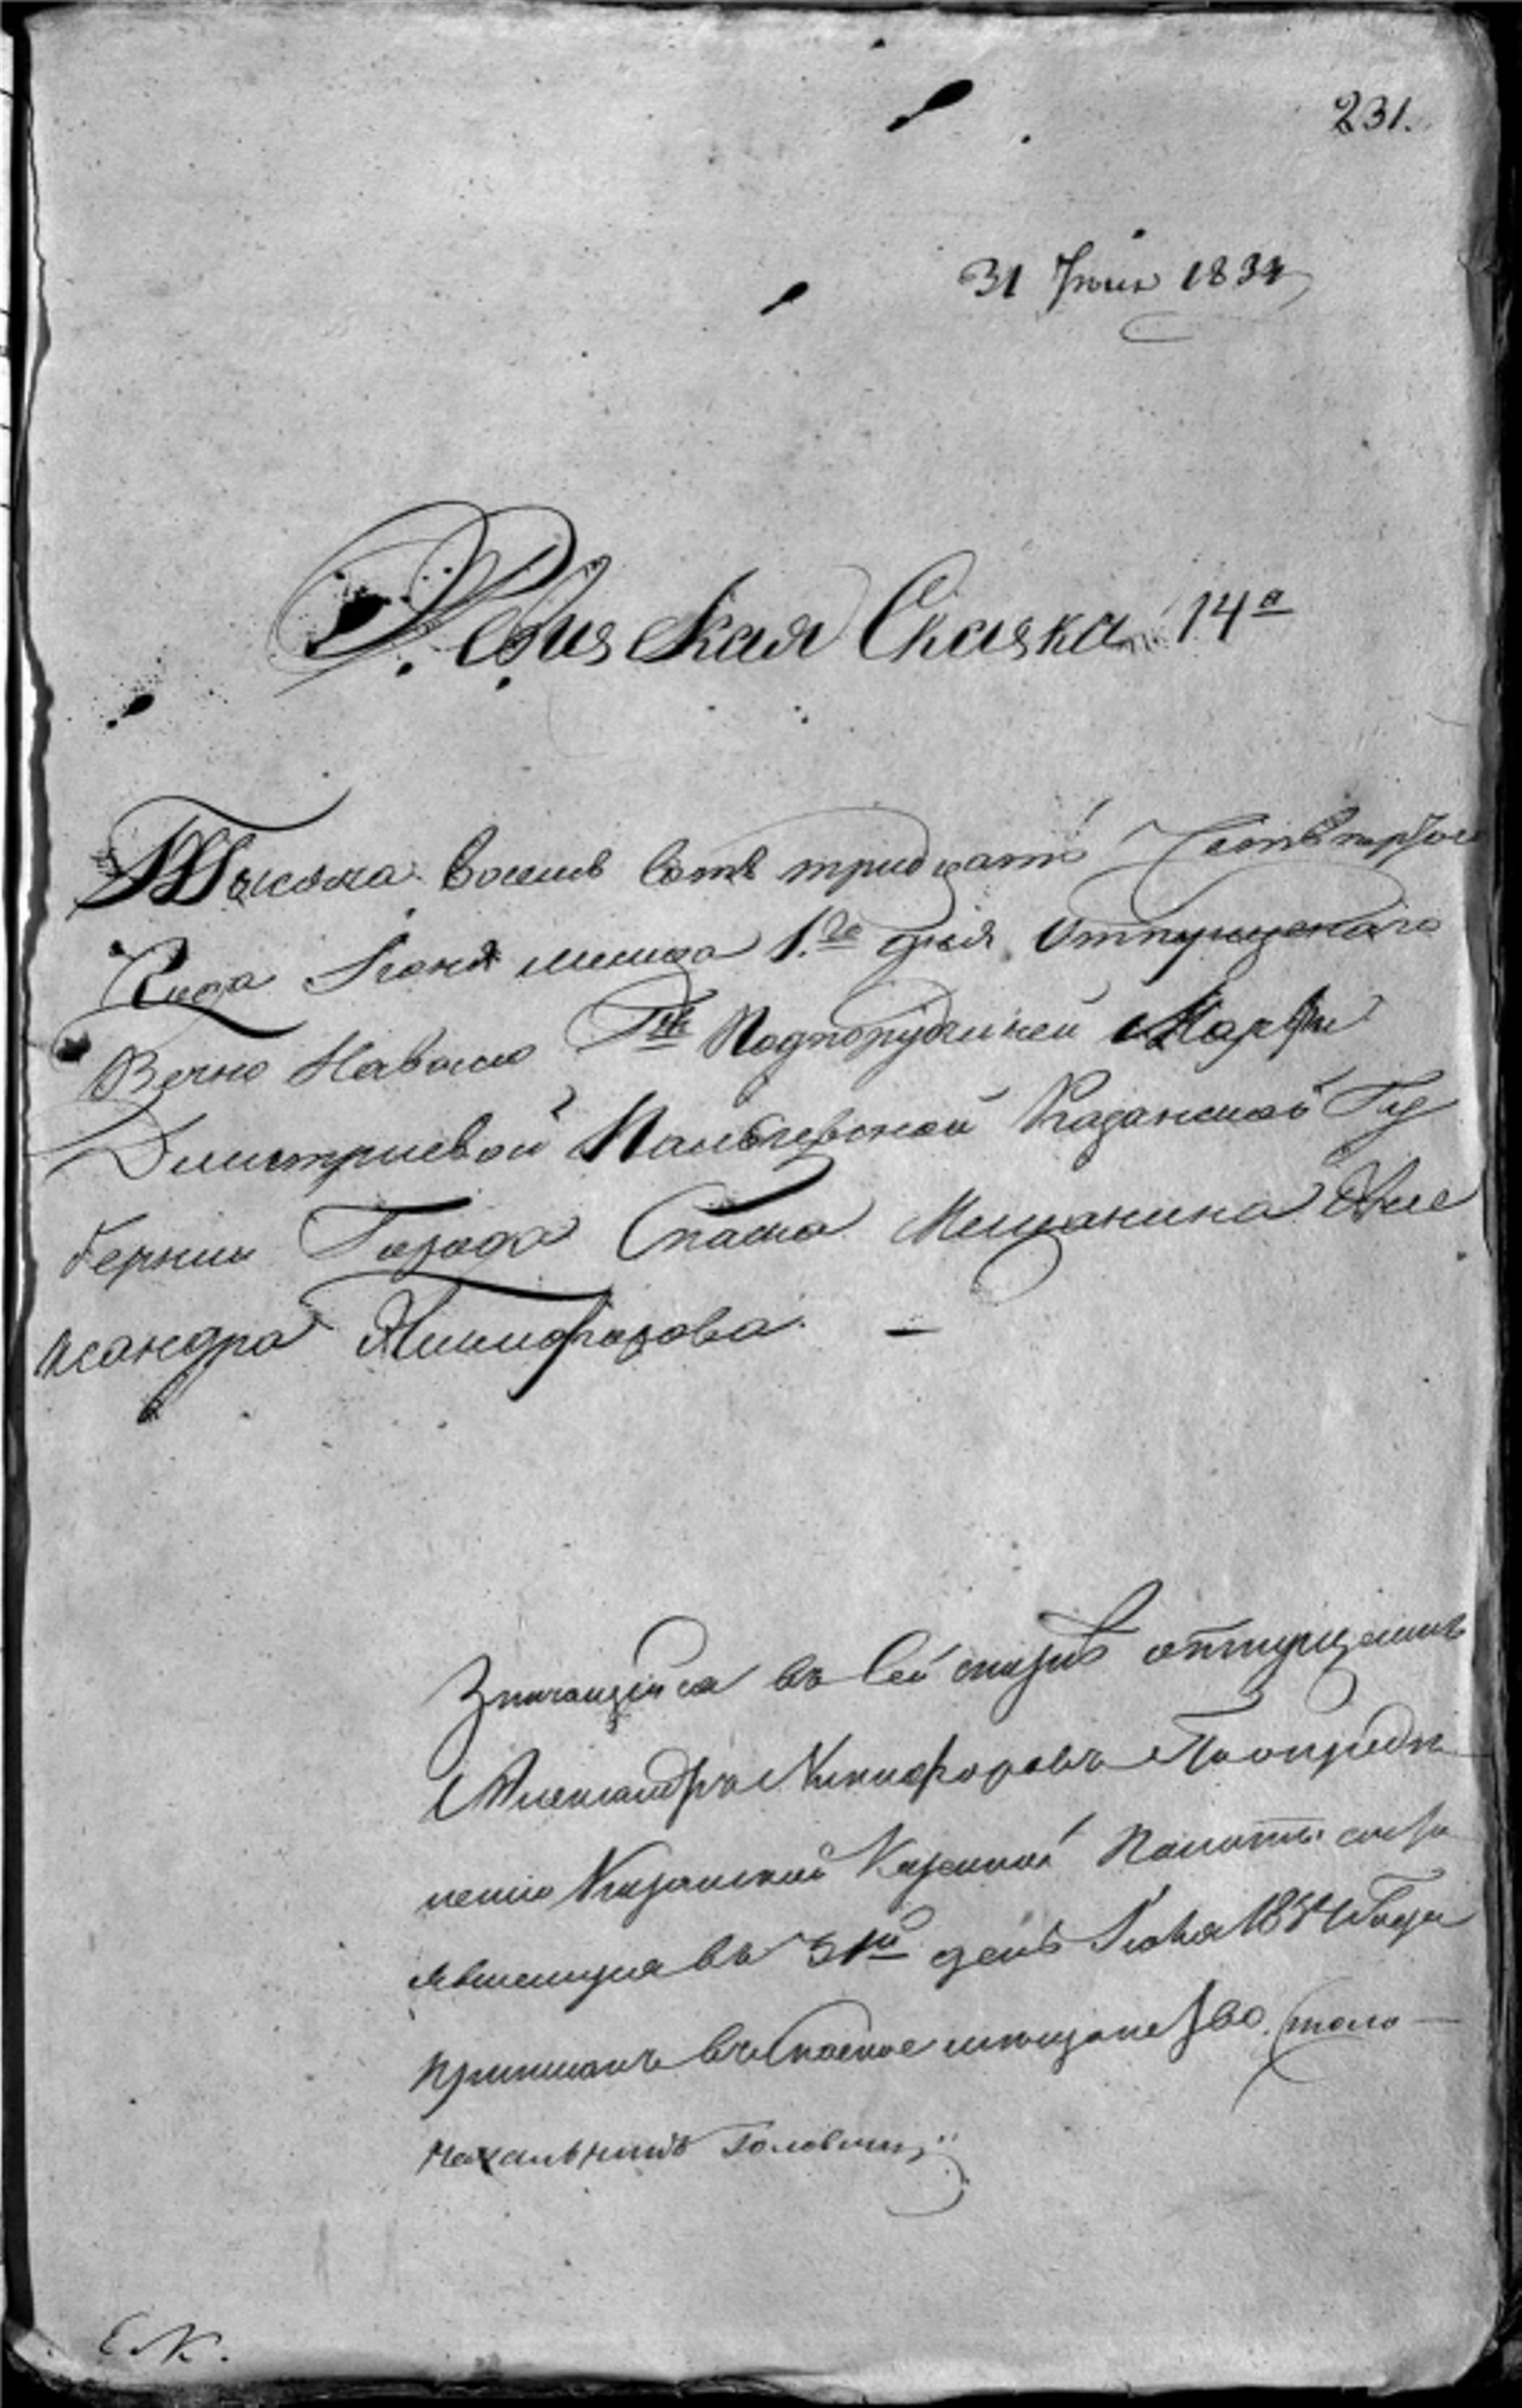 231.
31 Іюля 1834
Ревизская Сказка 14а
Тысяча восемь сотъ тридцать Четвертого
Года Іюня месяца 1го дня Отпущеннаго
Вечно На волю Гжи Подпорутчицей Марфи
Дмитриевой Казанской Гу
берніи Города Спаска Мещанина Але
ксандра Никифорова. —
Значащійся въ Сей сказке отпущенник
Александръ Никифоровъ По опреде
лению Казанской Казенной Палаты состо
явшемуся въ 31й день Іюля 1834 Года
причисленъ въ Спаское мещанство. Столо —
начальникъ Головин
Е. К.